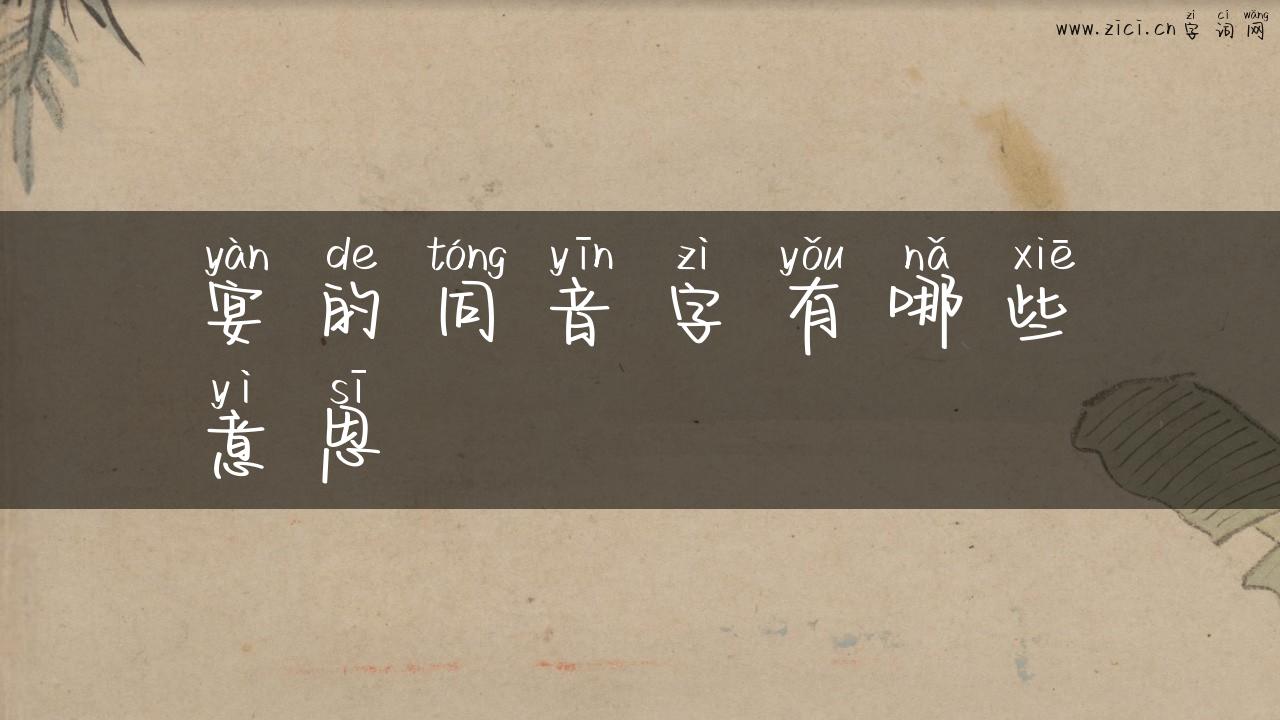 zì cí wǎng
www.zici.cn 字词网
yàn de tóng yīn zì yǒu nǎ xiē
宴的同音字有哪些
yì sī
意思